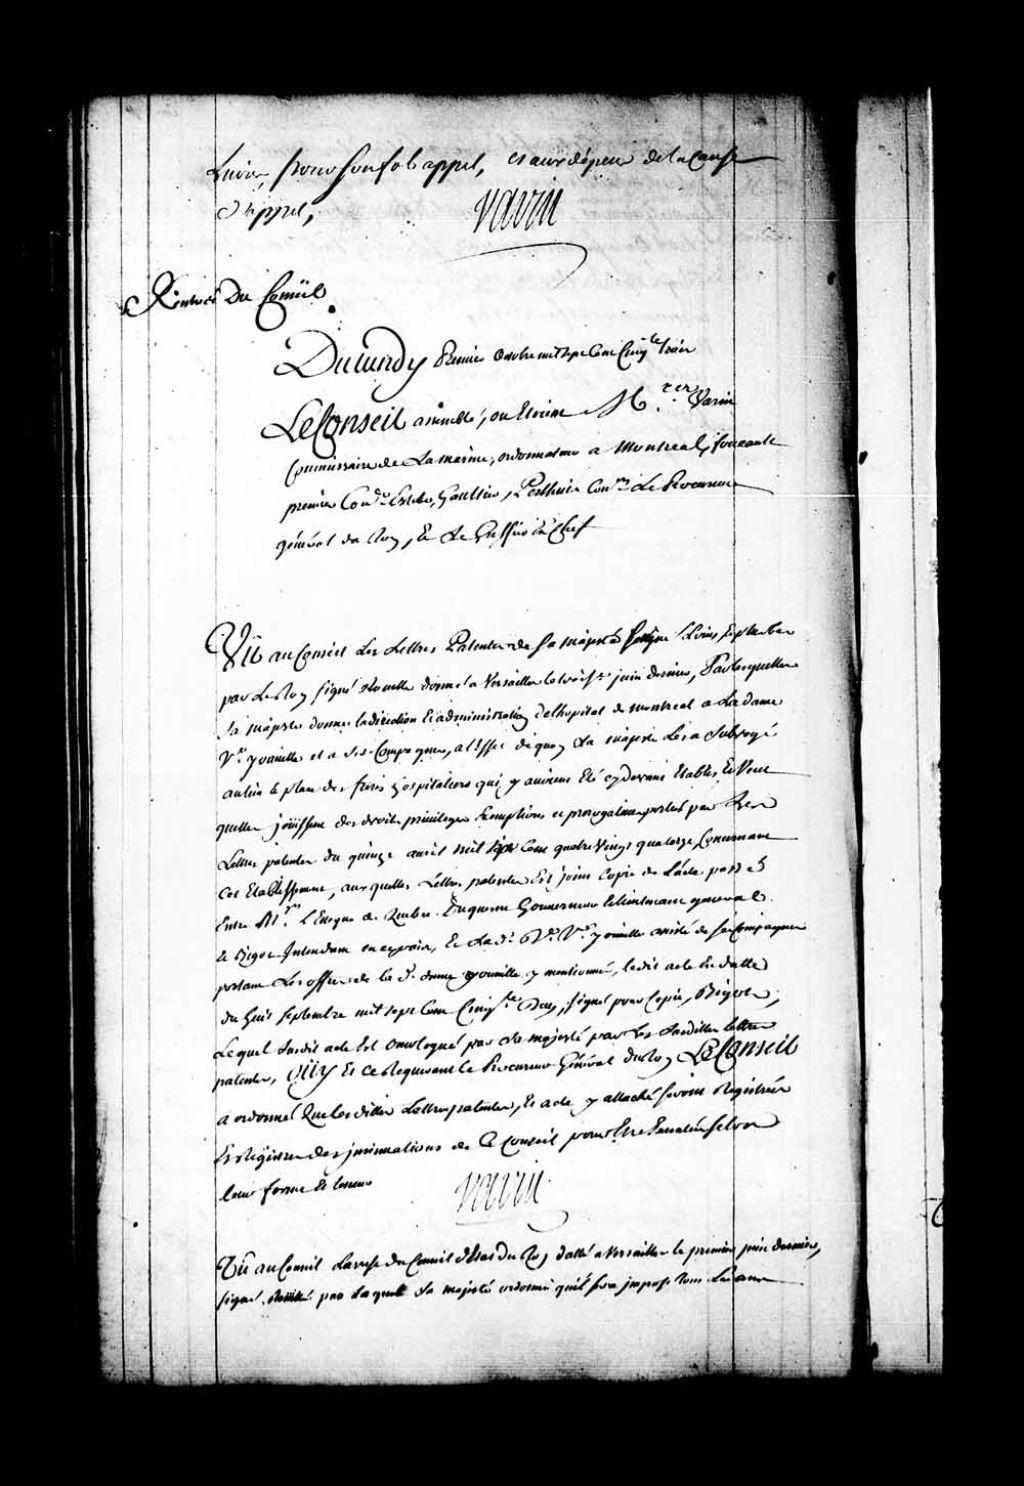 Livres, pour son fol appel, et aux dépens de la Cause
d'appel,
Varin
Rentrée Du Conseil
Du Lundy Premier Octobre mil sept Cent Cinq.te trois
Le Conseil assemblé, ou Etoient M. Varin
Commissaire de La marine, ordonnateur a Montreal, foucault
premier Con.er Estebe, Gaultier, Perthuis Con.ers Le Procureur
général du Roy, Et Le Greffier en Chef
Vû au Conseil Les Lettres Patentes de Sa Majesté Signé Louis, Et plus bas
par Le Roy signé Rouillé donné a Versailles le trois juin dernier, Par lesquelles
Sa Majesté donne la direction Et administration de l'hopital de Montreal a La dame
V.e youville et a ses Compagnes, a l'Effet de quoy Sa Majesté Les a Subrogé
au lieu & place des freres hospitaliers qui y avoient Eté cydevant Etablis, Et Veut
quelles joüissent des droits privileges Exemptions et prerogatives portés par Les
Lettres patentes du quinze avril mil six Cent quatre Vingt quatorze, Concernant
Cet Etablissement, aux quelles Lettres patentes Est joint Copie de L'acte passé
Entre M.rs L'Eveque de Quebec Duquesne Gouverneur Lieutenant general
& Bigot Intendant en ce pais, Et La d.e V.e youville assisté de ses Compagnes
portant Les offres de la d. dame youville y mentionnés, le dit acte En datte
du huit septembre mil sept Cent Cinq.te Deux, signé pour Copie, Bigot,
Lequel susdit acte Est omologué par Sa Majesté par Les Susdittes lettres
patentes, Oüy Et ce Requerant le Procureur Général du Roy Le Conseil
a ordonné Que les dittes Lettres patentes, Et acte y attaché seront Registrées
Es Registres des insinuations de Ce Conseil pour Etre Executées selon
leur forme Et teneur
Varin
Vû au Conseil L'arrest du Conseil d'Etat du Roy datté a Versailles le premier juin dernier,
signé Rouillé par Laquel Sa Majesté ordonne qu'il sera imposé tous Les ans